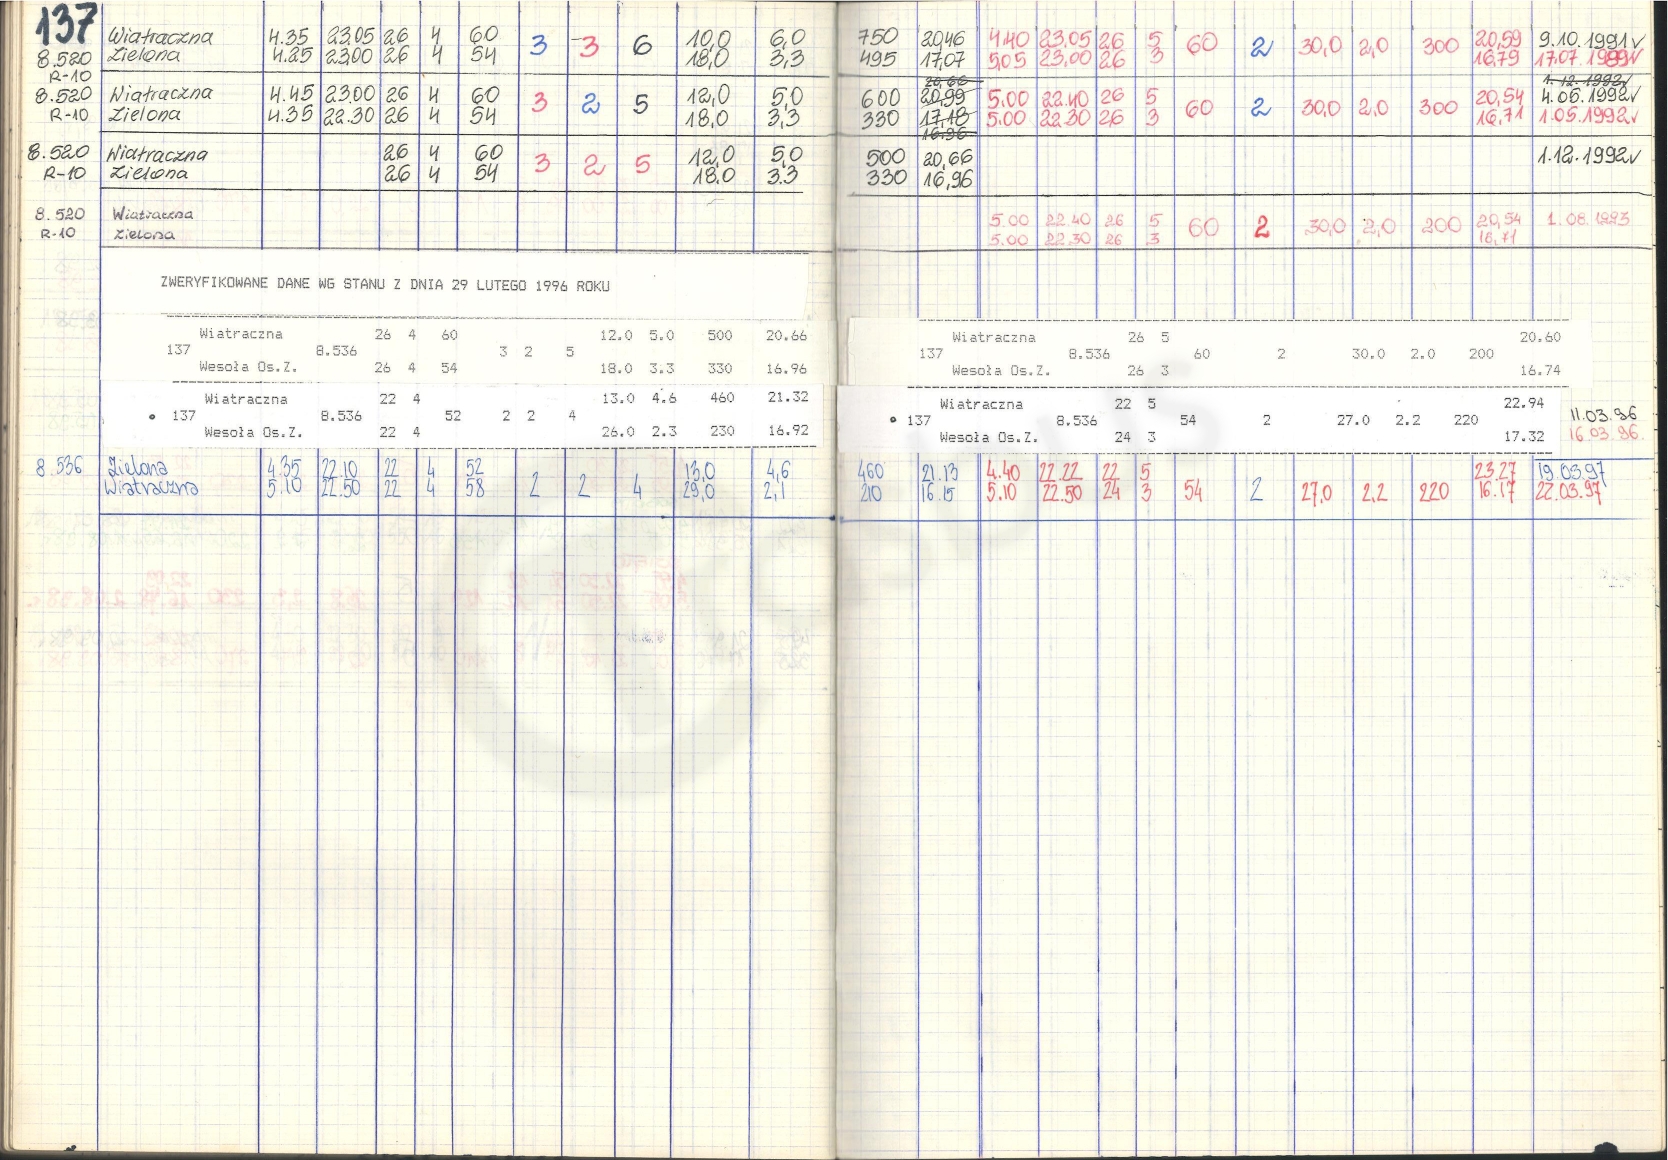 137 Wiatraczna 4.35 23.05 26 4 60 3 3 6 10,0 6,0 750 20,46 4.40 23,05 26 5 60 2 30,0 2,0 300 20,59 9.10.1991√
8.520 Zielona 4.25 23.00 26 4 54 18,0 3,3 495 17,07 5,05 23,00 26 3 16,79 17.07.1989√
R-10 20,66 1.12.1992√
8.520 Wiatraczna 4.45 23.00 26 4 60 3 2 5 12,0 5,0 600 20,99 5.00 22.40 26 5 60 2 30,0 2,0 300 20,54 4.06.1992√
R-10 Zielona 4.35 22.30 26 4 54 18,0 3,3 330 17,18 5.00 22.30 26 3 16,71 1.05.1992√
16,96
8.520 Wiatraczna 26 4 60 3 2 5 12,0 5,0 500 20,66 1.12.1992√
R-10 Zielona 26 4 54 18.0 3.3 330 16,96
8.520 Wiatraczna 5.00 22.40 26 5 60 2 30,0 2,0 200 20,54 1.08.1993
R-10 Zielona 5.00 22.30 26 3 16,71
ZWERYFIKOWANE DANE WG STANU Z DNIA 29 LUTEGO 1996 ROKU
Wiatraczna 26 4 60 12.0 5.0 500 20.66 Wiatraczna 26 5 20.60
137 8.536 3 2 5 137 8.536 60 2 30.0 2.0 200
Wesoła Os.Z. 26 4 54 18.0 3.3 330 16.96 Wesoła Os.Z. 26 3 16.74
Wiatraczna 22 4 13.0 4.6 460 21.32 Wiatraczna 22 5 22.94 11.03.96
137 8.536 52 2 2 4 137 8.536 54 2 27.0 2.2 220
Wesoła Os.Z. 22 4 26.0 2.3 230 16.92 Wesoła Os.Z. 24 3 17.32 16.03.96.
8.536 Zielona 4.35 22.10 22 4 52 2 2 4 13,0 4,6 460 21.13 4.40 22.22 22 5 54 2 27,0 2,2 220 23.27 19.03.97
Wiatraczna 5.10 22.50 22 4 58 29,0 2,1 210 16.15 5.10 22.50 24 3 16.17 22.03.97